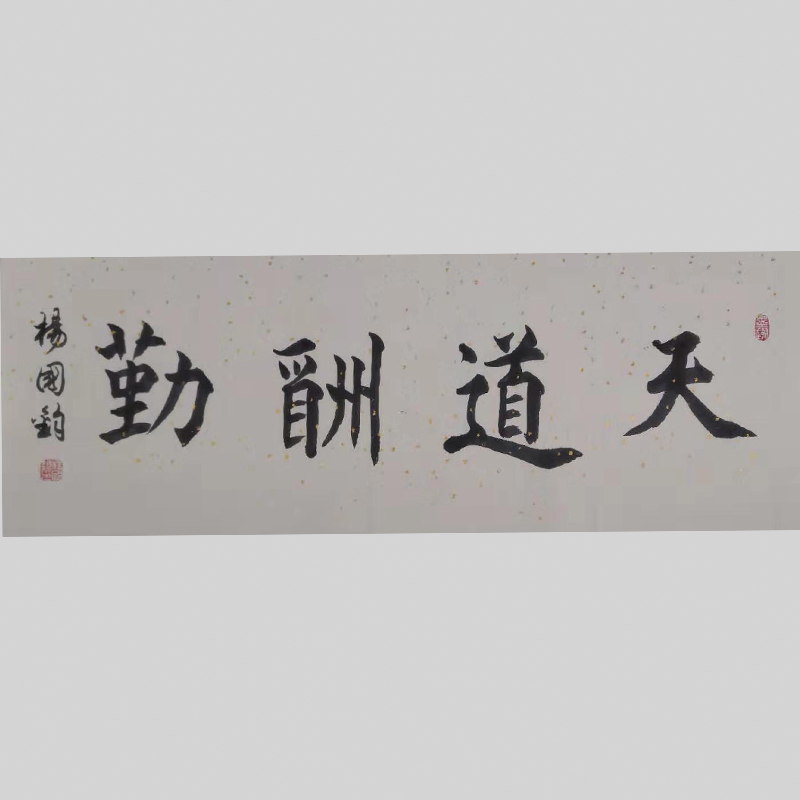 天道酬勤
楊國鈞